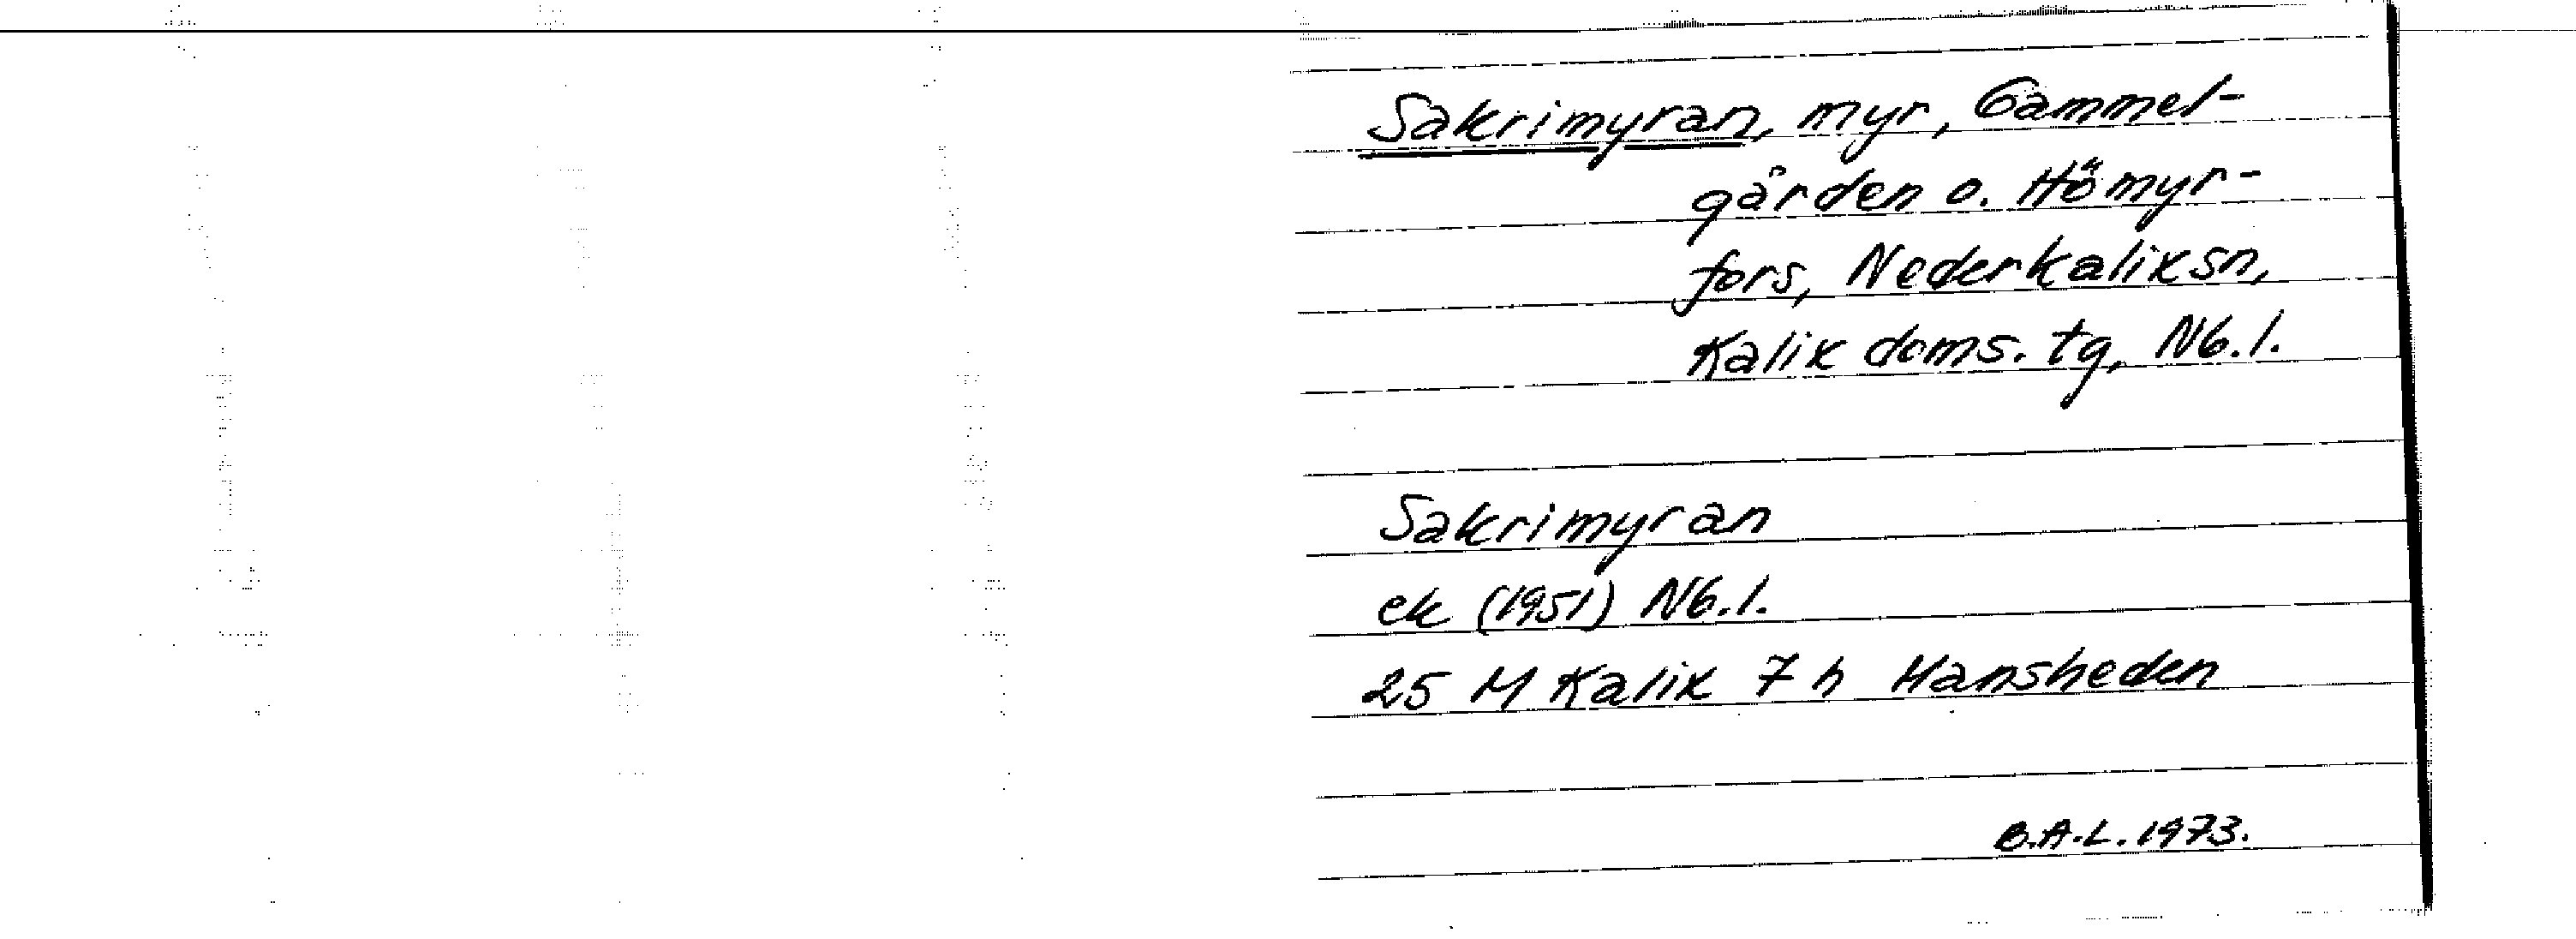 Sakrimyran, myr, Gammel-
gården o. Hömyr-
fors, Nederkalix sn,
Kalix doms. tg, Nb.l.
Sakrimyran
ek (1951) Nb.l.
25 M Kalix 7 h Hansheden
B.A.L. 1973.